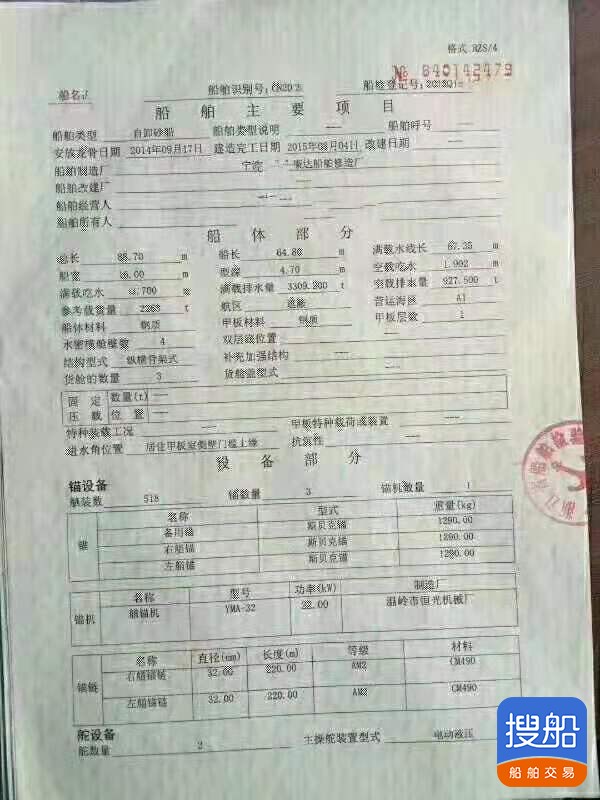 格式 RZS/4
№ 840142479
船舶识别号:CN202
船检登记号:
船舶主要项目
船舶类型 自卸砂船 船舶类型说明 —— 船舶呼号 ——
安放龙骨日期 2014年09月17日 建造完工日期 2015年08月04日 改建日期 ——
船舶制造厂 顺达船舶修造厂
船舶改建厂
船舶经营人
船舶所有人
船体部分
总长 68.70 m 船长 64.80 m 满载水线长 67.35 m
型宽 16.00 m 型深 4.70 m 空载吃水 1.902 m
满载吃水 3.700 m 满载排水量 3309.800 t 空载排水量 927.500 t
参考载货量 2263 t 航区 遮蔽 营运海区 A1
船体材料 钢质 甲板材料 钢质 甲板层数 1
水密横舱壁数 4 双层底位置 ——
结构型式 纵横骨架式 补充加强结构 ——
货舱的数量 3 货舱盖型式 ——
固定 数量(t) ——
压载 位置 ——
特种装载工况 —— 甲板特种载荷或装置 ——
进水角位置 居住甲板室侧壁门槛上缘 抗氙性 ——
设备部分
锚设备
舾装数 518 锚数量 3 锚机数量 1
锚 名称 型式 重量(kg)
备用锚 斯贝克锚 1290.00
右艏锚 斯贝克锚 1290.00
左艏锚 斯贝克锚 1290.00
锚机 名称 型号 功率(kW) 制造厂
艏锚机 YMA-32 22.00 温岭市恒光机械厂
锚链 名称 直径(mm) 长度(m) 等级 材料
右艏锚链 32.00 220.00 AM2 CM490
左艏锚链 32.00 220.00 AM2 CM490
舵设备
舵数量 2 主操舵装置型式 电动液压
搜船
船舶交易